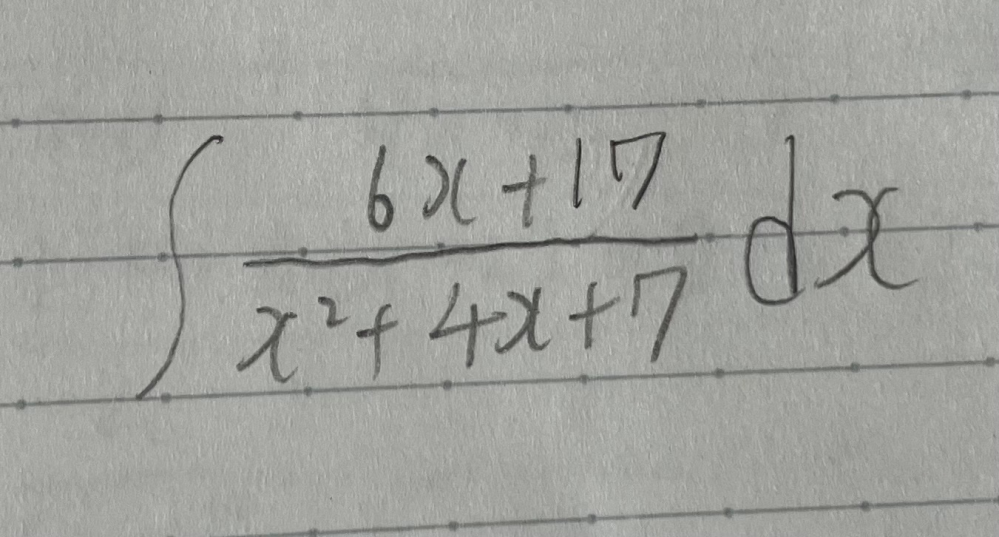 ∫ (6x+17)/(x²+4x+7) dx